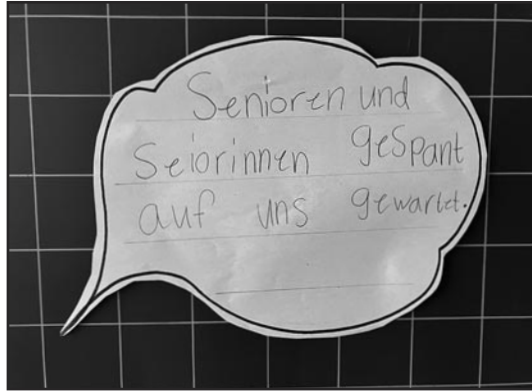 Senioren und
Seiorinnen gespant
auf uns gewartet.